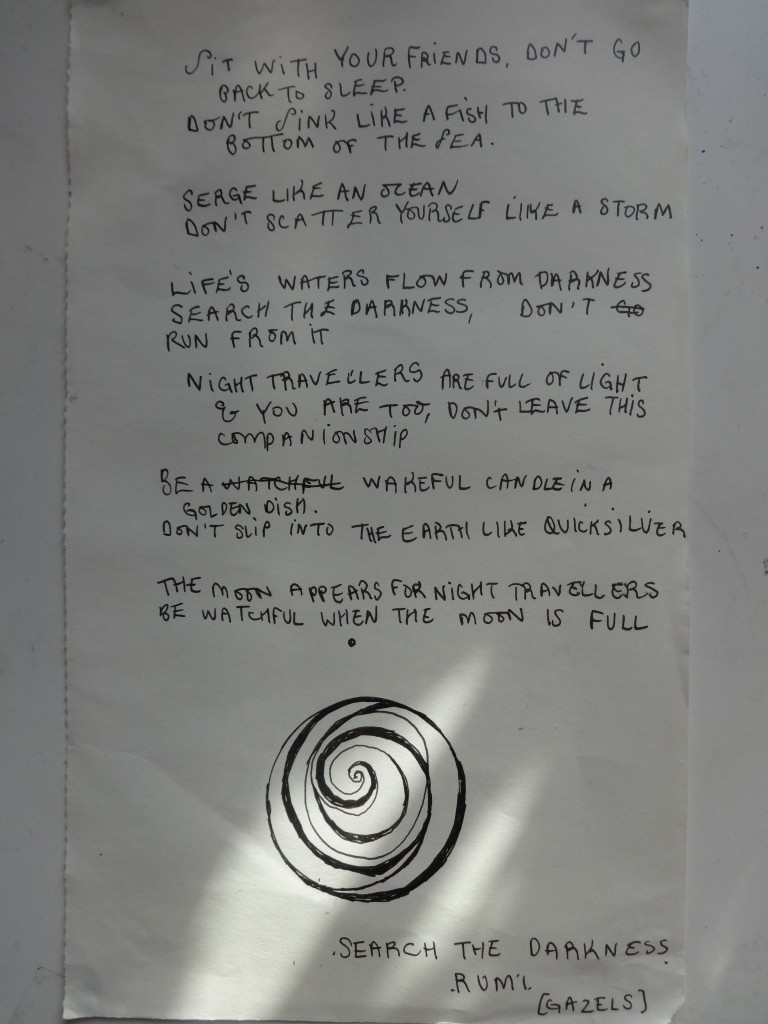 SIT WITH YOUR FRIENDS, DON'T GO
BACK TO SLEEP.
DON'T SINK LIKE A FISH TO THE
BOTTOM OF THE SEA.
SERGE LIKE AN OCEAN
DON'T SCATTER YOURSELF LIKE A STORM
LIFE'S WATERS FLOW FROM DARKNESS
SEARCH THE DARKNESS, DON'T GO
RUN FROM IT
NIGHT TRAVELLERS ARE FULL OF LIGHT
& YOU ARE TOO, DON'T LEAVE THIS
COMPANIONSHIP
BE A WATCHFUL WAKEFUL CANDLE IN A
GOLDEN DISH.
DON'T SLIP INTO THE EARTH LIKE QUICKSILVER
THE MOON APPEARS FOR NIGHT TRAVELLERS
BE WATCHFUL WHEN THE MOON IS FULL
.SEARCH THE DARKNESS.
.RUMI.
[GAZELS]